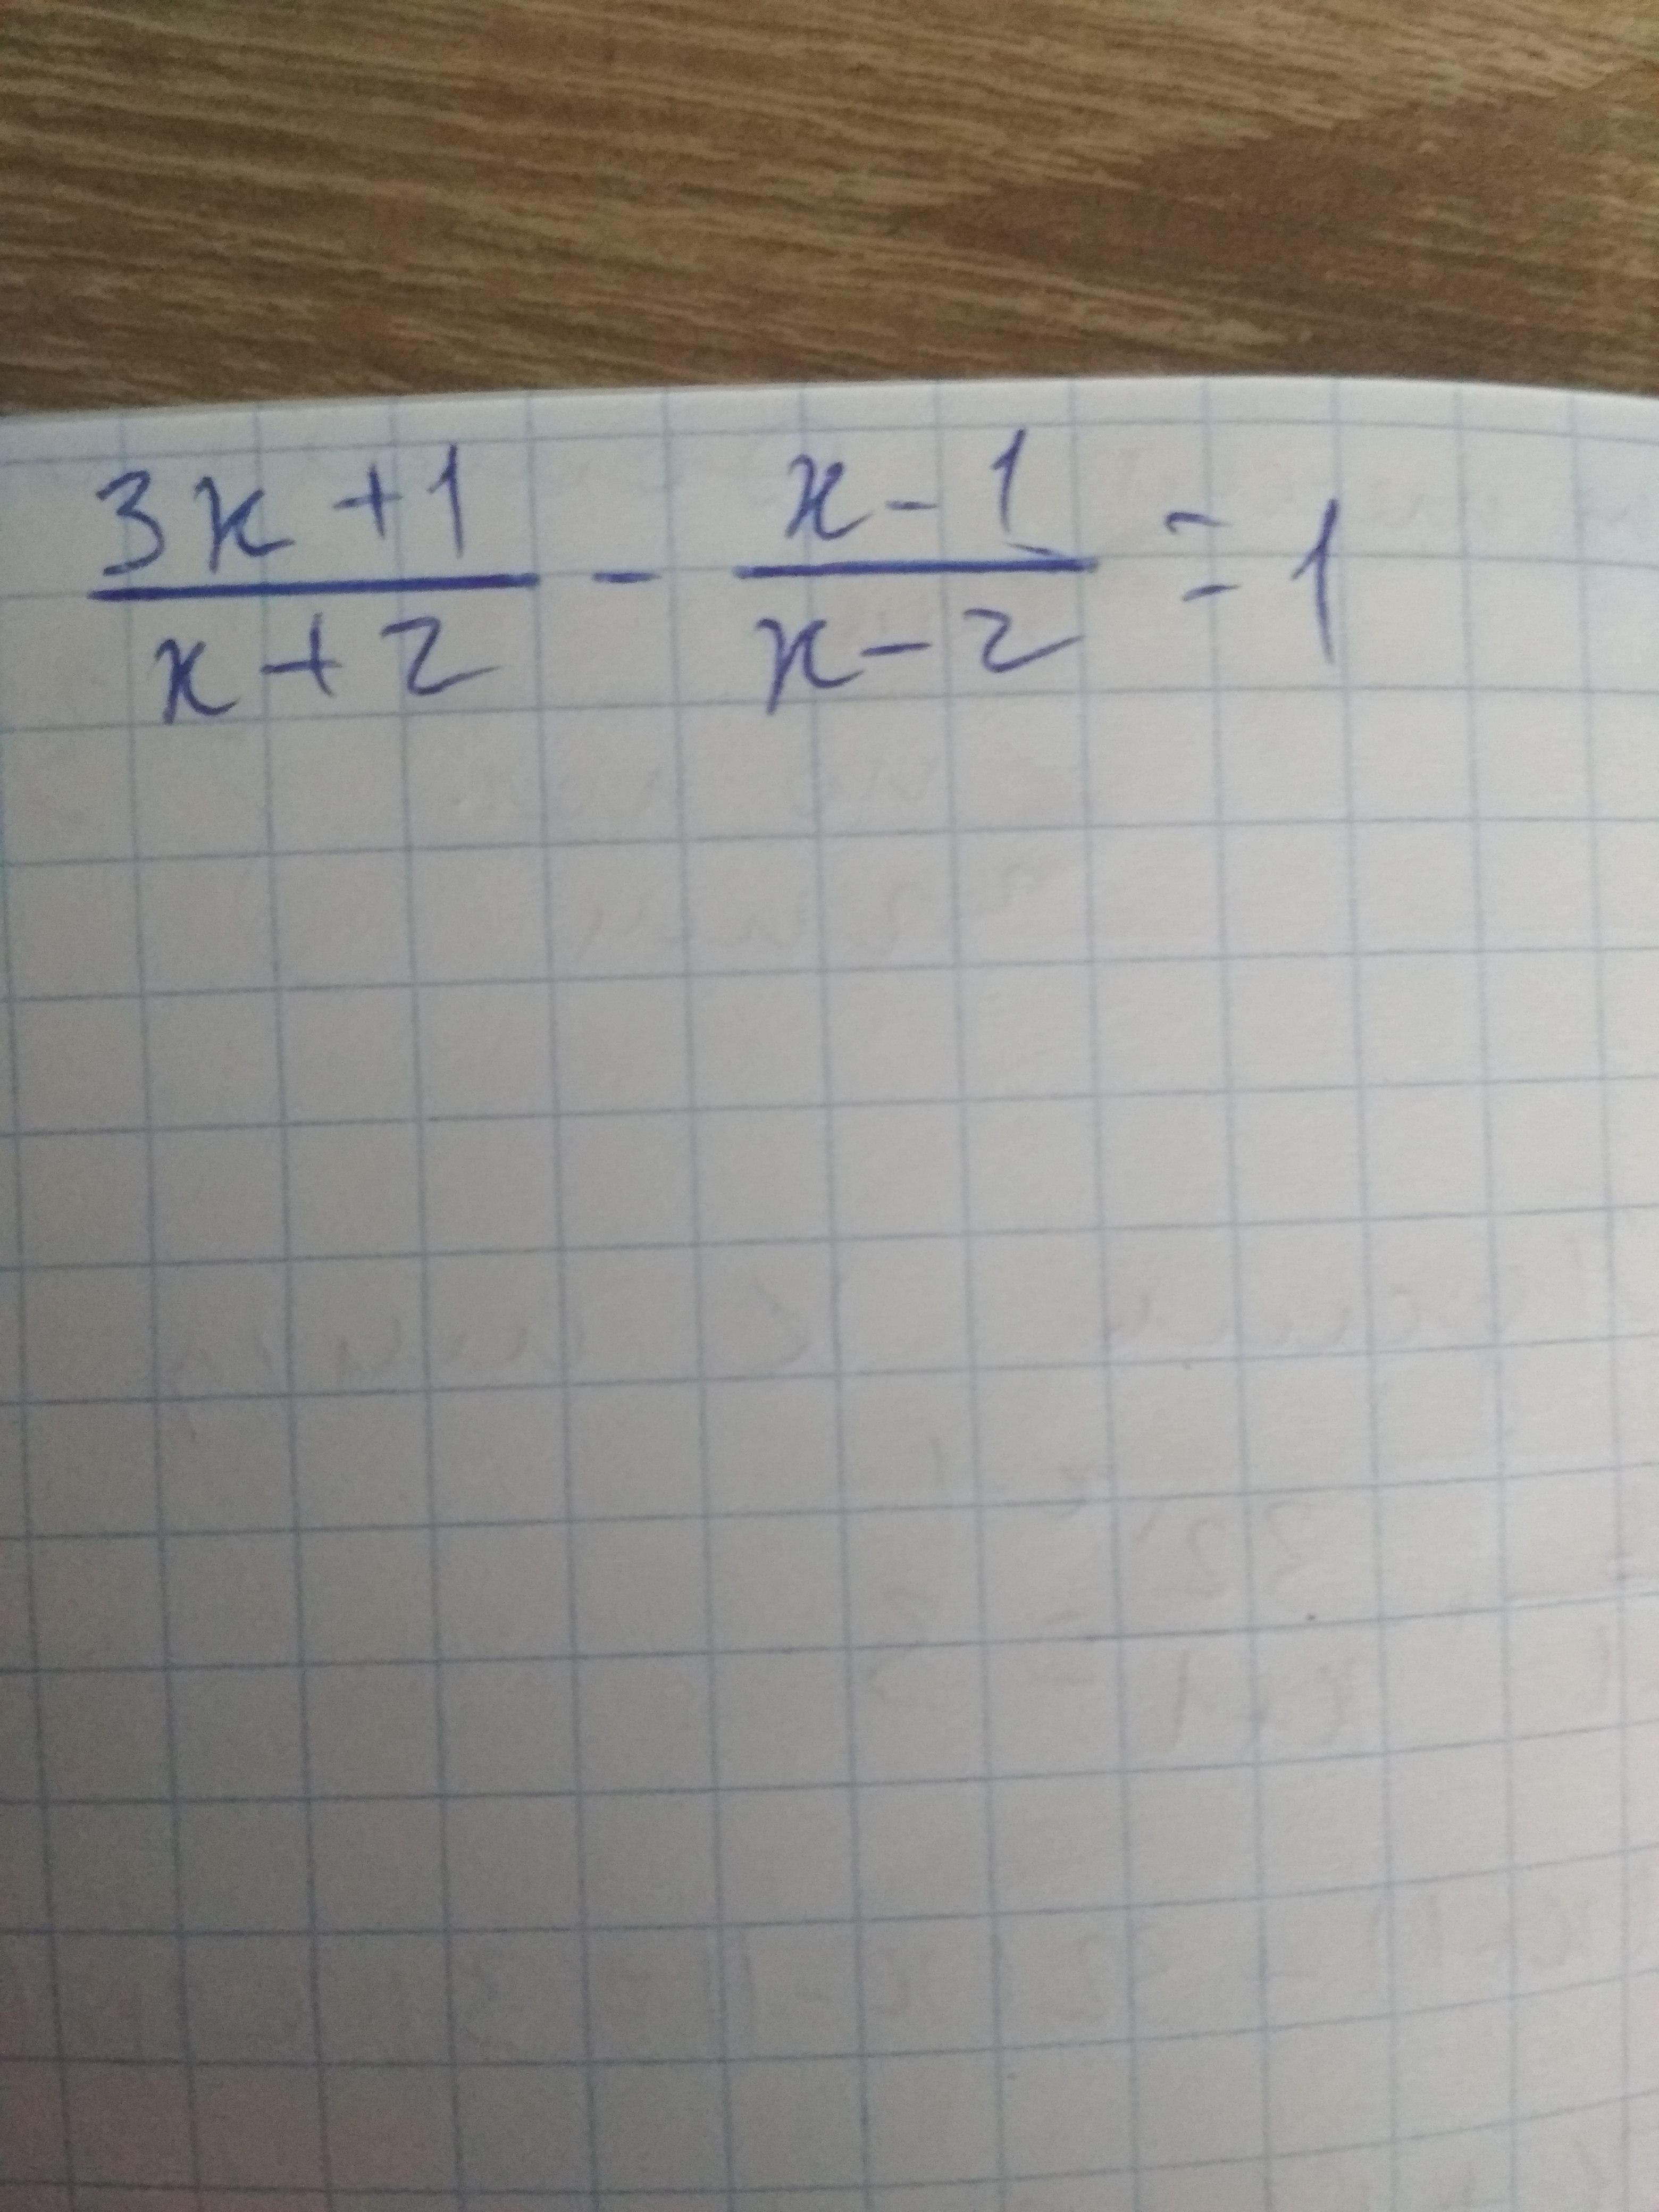 (3x+1)/(x+2) - (x-1)/(x-2) = 1